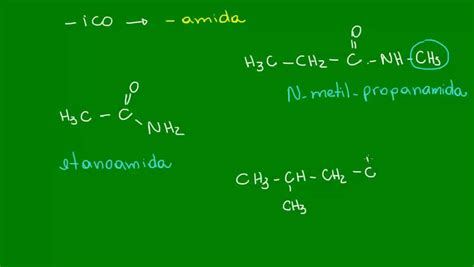 - ico → - amida
O
H₃C - CH₂ - C - NH - CH₃
N-metil-propanamida
O
H₃C - C
NH₂
etanoamida
CH₃ - CH - CH₂ - C
CH₃